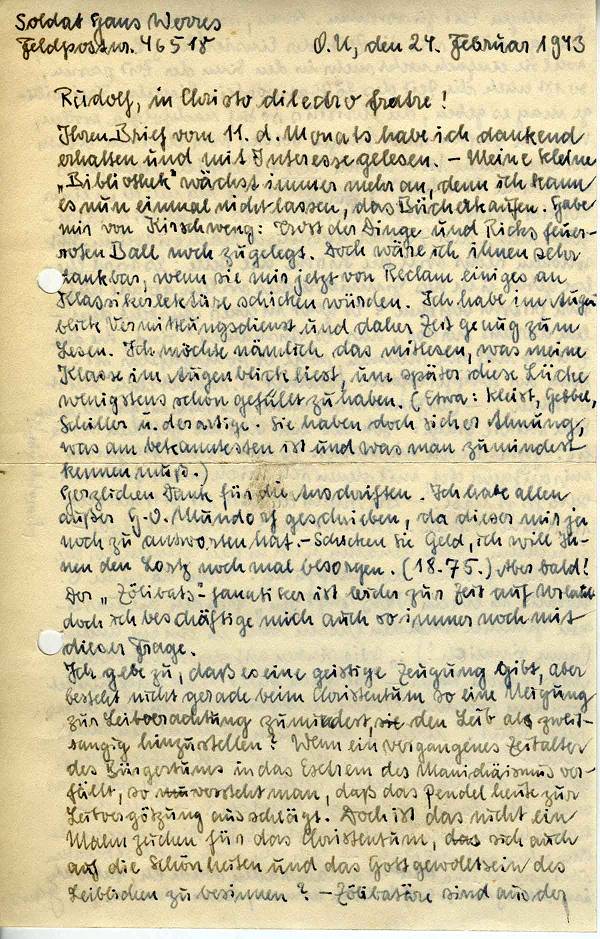 Soldat Hans Werres
Feldpostnr. 46518 O.U., den 24. Februar 1943
Rudolf, in Christo dilecto fratre!
Ihren Brief vom 11. d. Monats habe ich dankend
erhalten und mit Interesse gelesen. – Meine kleine
„Bibliothek" wächst immer mehr an, denn ich kann
es nun einmal nicht lassen, das Bücherkaufen. Habe
mir von Kirschweng: Trost der Dinge und Ricks feuer-
roten Ball noch zugelegt. Doch wäre ich ihnen sehr
dankbar, wenn sie mir jetzt von Reclam einiges an
Klassikerlektüre schicken würden. Ich habe im Augen
blick Vermittlungsdienst und daher Zeit genug zum
Lesen. Ich möchte nämlich das mitlesen, was meine
Klasse im Augenblick liest, um später diese Lücke
wenigstens schon gefüllt zu haben. (Etwa: Kleist, Hebbel,
Schiller u. derartige. Sie haben doch sicher Ahnung,
was am bekanntesten ist und was man zumindest
kennen muß.)
Herzlichen Dank für die Anschriften. Ich habe allen
außer H-O. Mundorf geschrieben, da dieser mir ja
noch zu antworten hat. – Schicken Sie Geld, ich will Ih-
nen den Lortz noch mal besorgen. (18.75.) Aber bald!
Der „Zölibats"-fanatiker ist leider zur Zeit auf Urlaub
doch ich beschäftige mich auch so immer noch mit
dieser Frage.
Ich gebe zu, daß es eine geistige Zeugung gibt, aber
besteht nicht gerade beim Christentum so eine Neigung
zur Leibverachtung zumindest, den Leib als zweit-
rangig hinzustellen? Wenn ein vergangenes Zeitalter
des Bürgertums in das Extrem des Manichäismus ver-
fällt, so versteht man, daß das Pendel heute zur
Leibvergötzung ausschlägt. Doch ist das nicht ein
Mahnzeichen für das Christentum, sich auch
auf die Schönheiten und das Gottgewolltsein des
Leiblichen zu besinnen? – Zölibatäre sind aus der